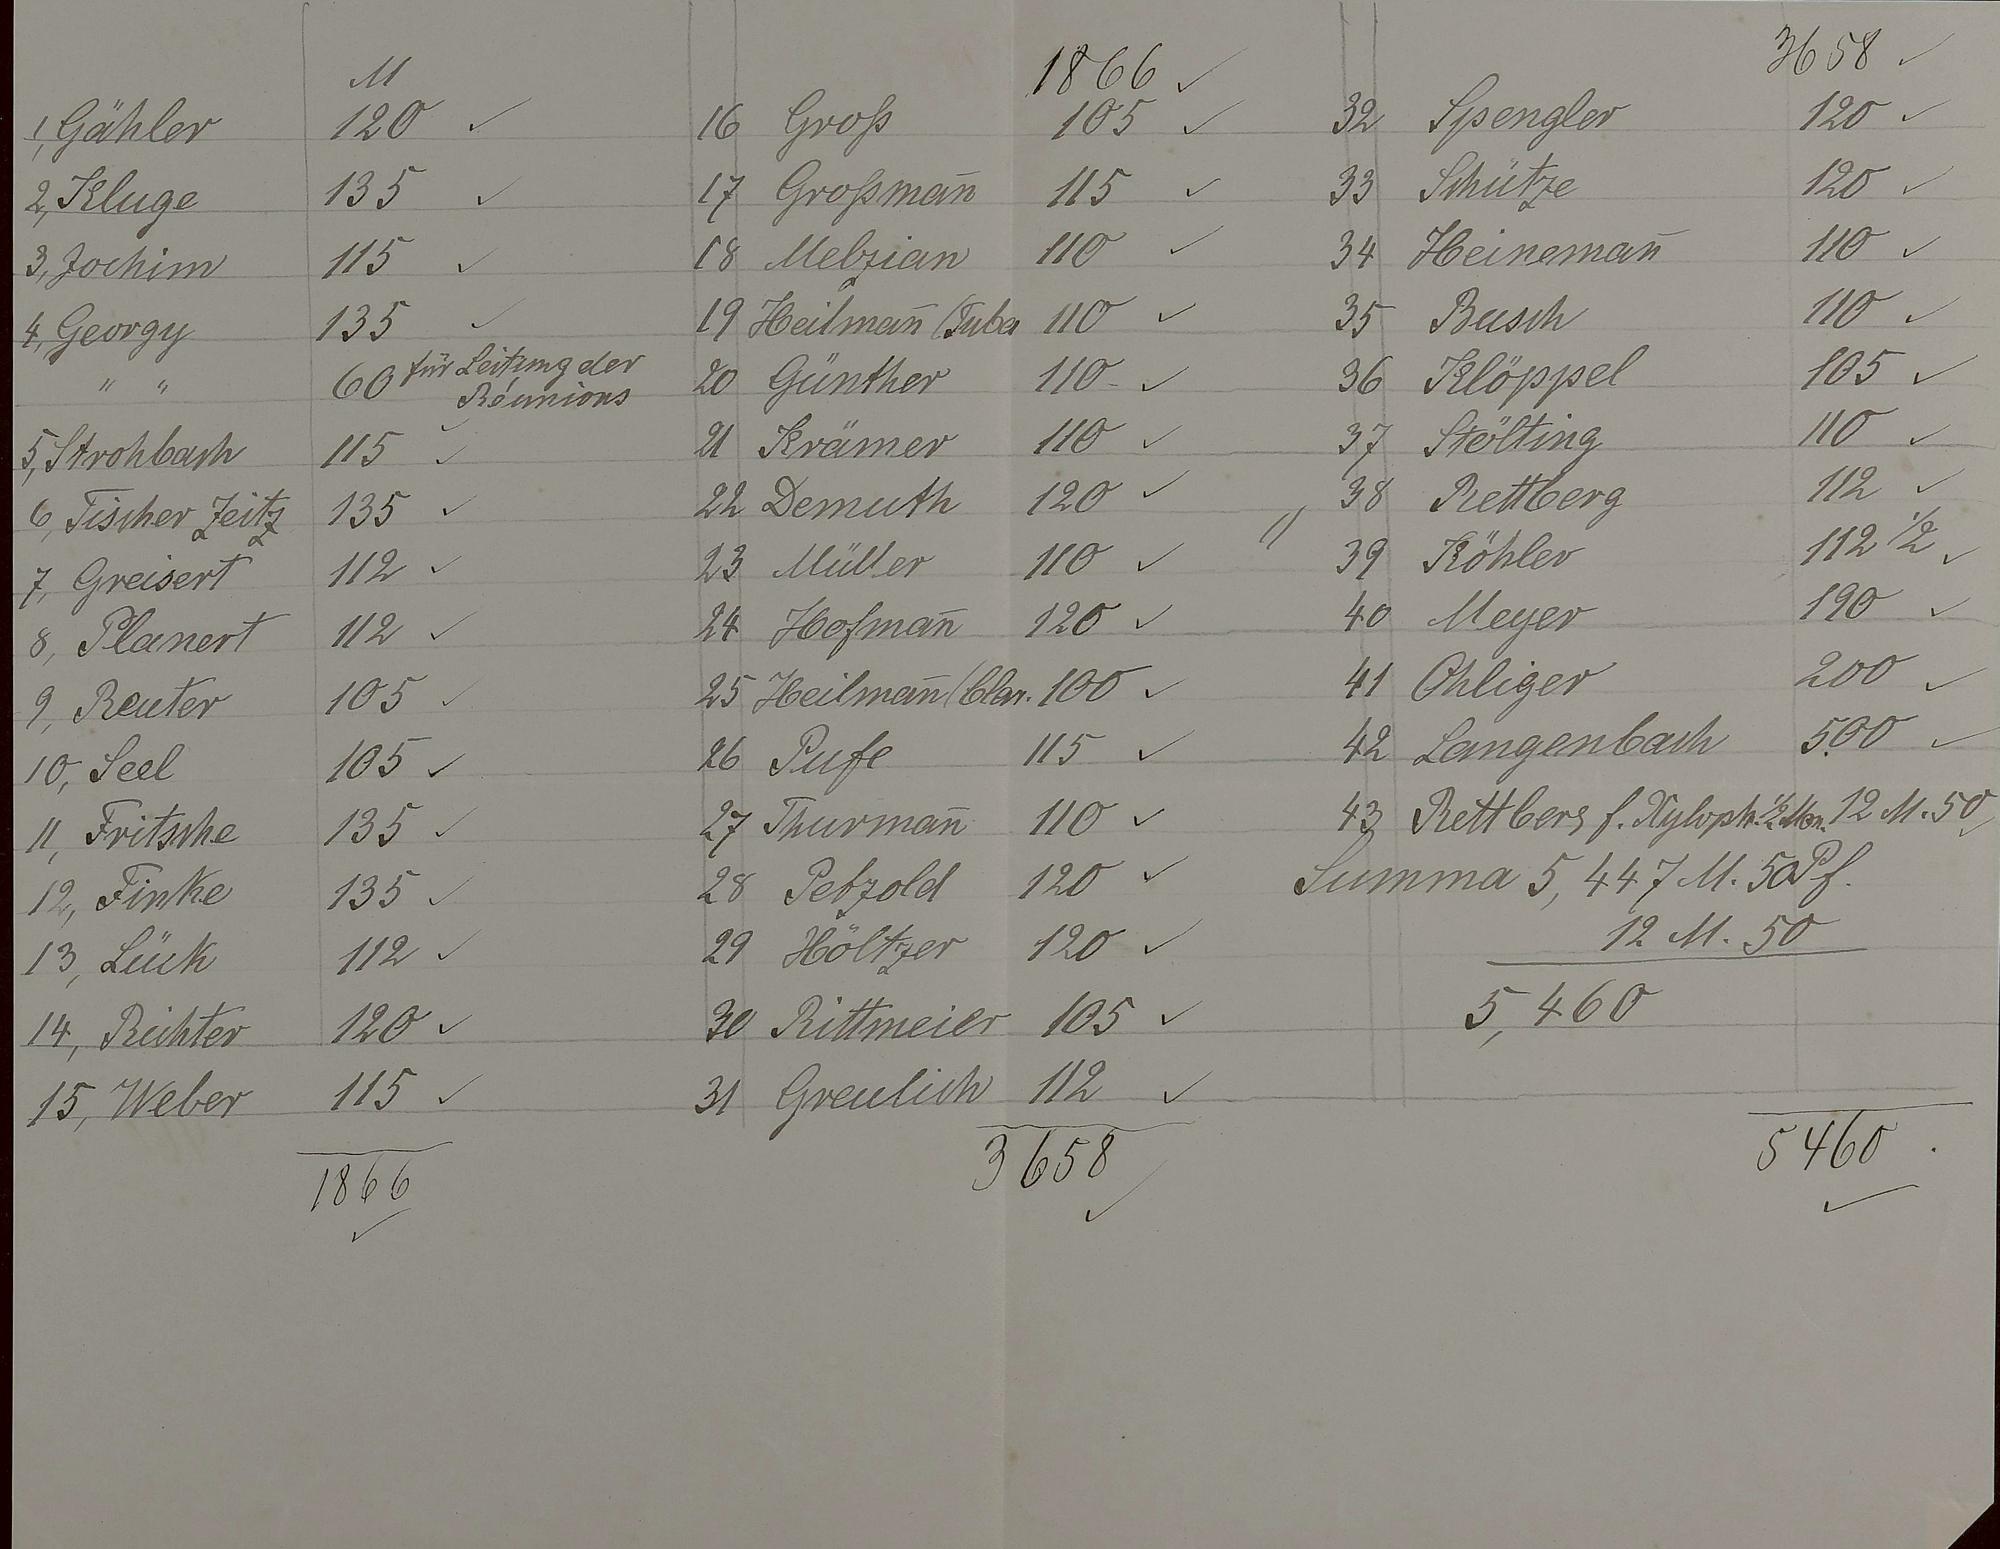 M
1, Gähler 120 ✓
2, Kluge 135 ✓
3, Jochim 115 ✓
4, Georgy 135 ✓
" " 60 für Leitung der
Réunions
5, Strohbach 115 ✓
6, Tischer Zeitz 135 ✓
7, Greisert 112 ✓
8, Planert 112 ✓
9, Reuter 105 ✓
10, Seel 105 ✓
11, Fritsche 135 ✓
12, Finke 135 ✓
13, Lück 112 ✓
14, Richter 120 ✓
15, Weber 115 ✓
1866
✓
1866 ✓
16 Groß 105 ✓
17 Großman̄ 115 ✓
18 Mebzian 110 ✓
19 Heilman̄ (Tuba 110 ✓
20 Günther 110 ✓
21 Krämer 110 ✓
22 Demuth 120 ✓
23 Müller 110 ✓
24 Hofman̄ 120 ✓
25 Heilman̄ (Clar. 100 ✓
26 Pufe 115 ✓
27 Thurman̄ 110 ✓
28 Petzold 120 ✓
29 Höltzer 120 ✓
30 Rittmeier 105 ✓
31 Greulich 112 ✓
3658
✓
3658 ✓
32 Spengler 120 ✓
33 Schütze 120 ✓
34 Heineman̄ 110 ✓
35 Busch 110 ✓
36 Klöppel 105 ✓
37 Stölting 110 ✓
38 Rettberg 112 ✓
" 39 Köhler 112 1/2 ✓
40 Meyer 190 ✓
41 Ohliger 200 ✓
42 Langenbach 500 ✓
43 Rettberg f. Xyloph. 1/2 Mon. 12 M. 50 ✓
Summa 5,447 M. 50 Pf.
12 M. 50
5,460
5460
✓